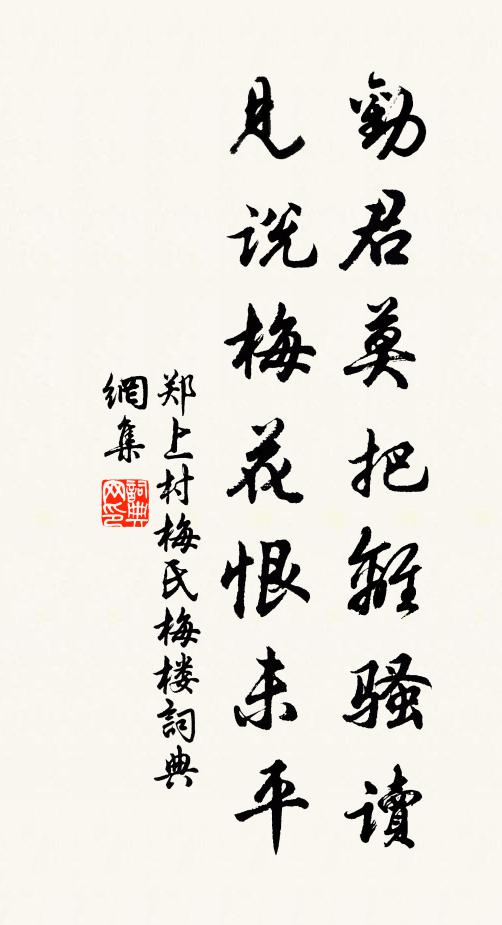 勸君莫把離騷讀
見说梅花恨未平
郑上村梅氏梅楼詞典
網集
詞典網印